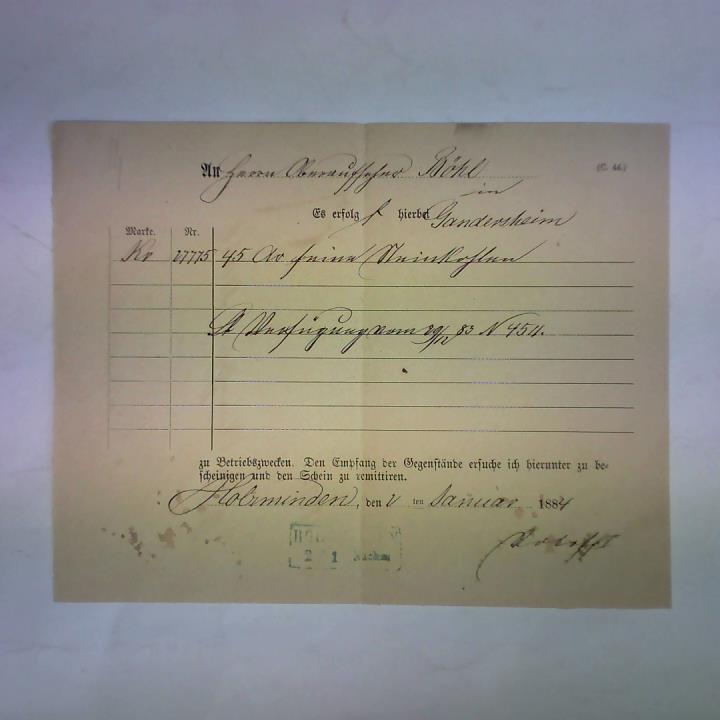 An Herrn Oberaufseher Böhl
(C. 44.)
in
Es erfolgt hierbei Gandersheim
Marke. Nr.
Kv 27775 45 Ctr feine Steinkohlen
Lt Verfügung vom 29/12 83 N 4511.
zu Betriebszwecken. Den Empfang der Gegenstände ersuche ich hierunter zu be-
scheinigen und den Schein zu remittiren.
Holzminden, den 2 ten Januar 1884
2 1